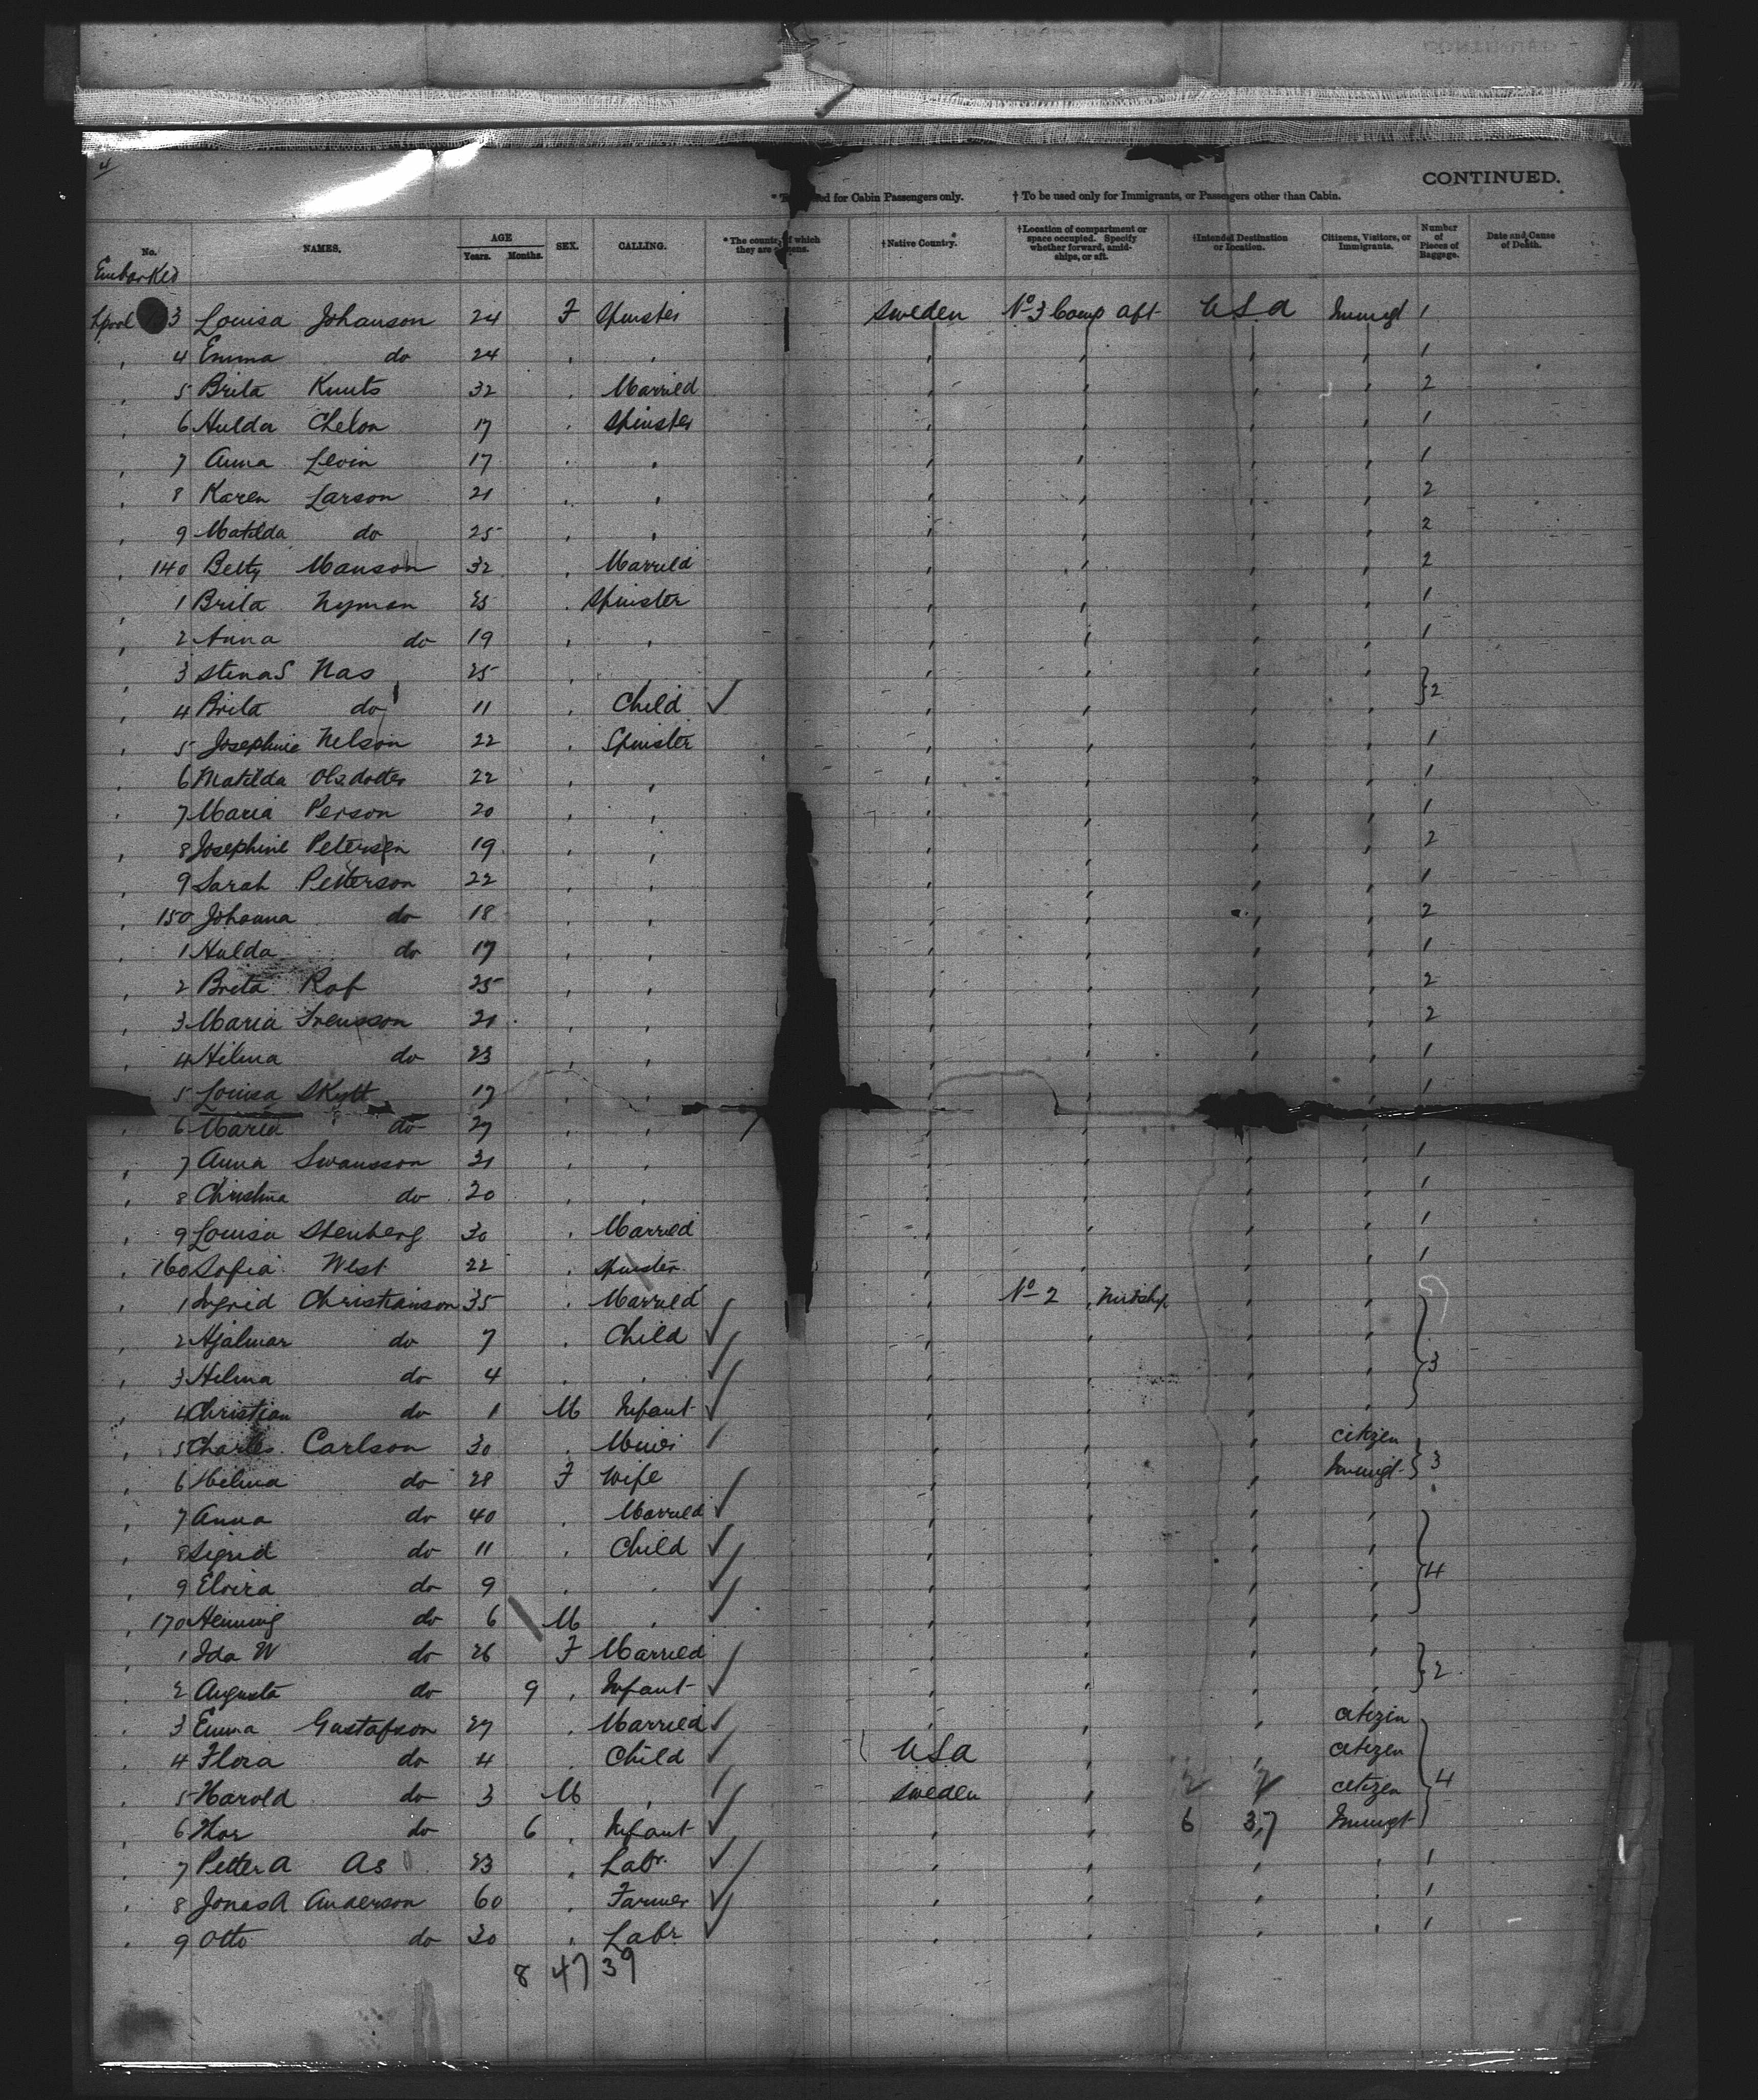 4
CONTINUED.
for Cabin Passengers only. † To be used only for Immigrants, or Passengers other than Cabin.
No. NAMES. AGE Years. Months. SEX. CALLING. *The country of which they are citizens. †Native Country. †Location of compartment or space occupied. Specify whether forward, amidships, or aft. †Intended Destination or location. Citizens, Visitors, or Immigrants. Number of Pieces of Baggage. Date and Cause of Death.
Embarked
Lpool 3 Louisa Johanson 24 F Spinster Sweden No 3 Comp aft U S a Immigt 1
" 4 Emma do 24 " " " " " " 1
" 5 Brita Knuts 32 " Married " " " " 2
" 6 Hulda Chelon 17 " Spinster " " " " 1
" 7 Anna Levin 17 " " " " " " 1
" 8 Karen Larson 21 " " " " " " 2
" 9 Matilda do 25 " " " " " " 2
" 140 Betty Manson 32 " Married " " " " 2
" 1 Brita Nyman 25 " Spinster " " " " 1
" 2 Anna do 19 " " " " " " 1
" 3 Stina S Nas 25 " " " " "
" 4 Brita do 11 " Child ✓ " " " " } 2
" 5 Josephine Nelson 22 " Spinster " " " " 1
" 6 Matilda Olsdotter 22 " " " " " " 1
" 7 Maria Person 20 " " " " " " 1
" 8 Josephine Petersen 19 " " " " " " 2
" 9 Sarah Petterson 22 " " " " " " 1
" 150 Johanna do 18 " " " " " " 2
" 1 Hulda do 17 " " " " " " 1
" 2 Breta Raf 25 " " " " " " 2
" 3 Maria Svensson 21 " " " " " " 2
" 4 Hilma do 23 " " " " " " 1
" 5 Louisa Skytt 17 " " " " " " 1
" 6 Maria do 27 " " " " " "
" 7 Anna Swansson 21 " " " " " " 1
" 8 Christina do 20 " " " " " " 1
" 9 Louisa Stenberg 30 " Married " " " " 1
" 160 Sofia West 22 " Spinster " " " " 1
" 1 Ingrid Christianson 35 " Married " No 2 Midship " "
" 2 Hjalmar do 7 " Child ✓ " " " "
" 3 Hilma do 4 " " ✓ " " " " } 3
" 4 Christian do 1 M Infant ✓ " " " "
" 5 Charles Carlson 30 " Miner ✓ " " " citizen
" 6 Helma do 28 F Wife " " " Immigt } 3
" 7 Anna do 40 " Married ✓ " " " "
" 8 Sigrid do 11 " Child ✓ " " " "
" 9 Elvira do 9 " " ✓ " " " " } 4
" 170 Henning do 6 M " ✓ " " " "
" 1 Ida W do 26 F Married " " " "
" 2 Augusta do 9 " Infant ✓ " " " " } 2
" 3 Emma Gustafson 27 " Married ✓ " " " citizen
" 4 Flora do 4 " Child ✓ U S a " " citizen
" 5 Harold do 3 M " ✓ Sweden " citizen } 4
" 6 Thor do 6 " Infant ✓ " " 6 37 Immigt
" 7 Petter A As 23 " Labr ✓ " " " " 1
" 8 Jonas A Anderson 60 " Farmer ✓ " " " " 1
" 9 Otto do 30 " Labr ✓ " " " " 1
8 47 39